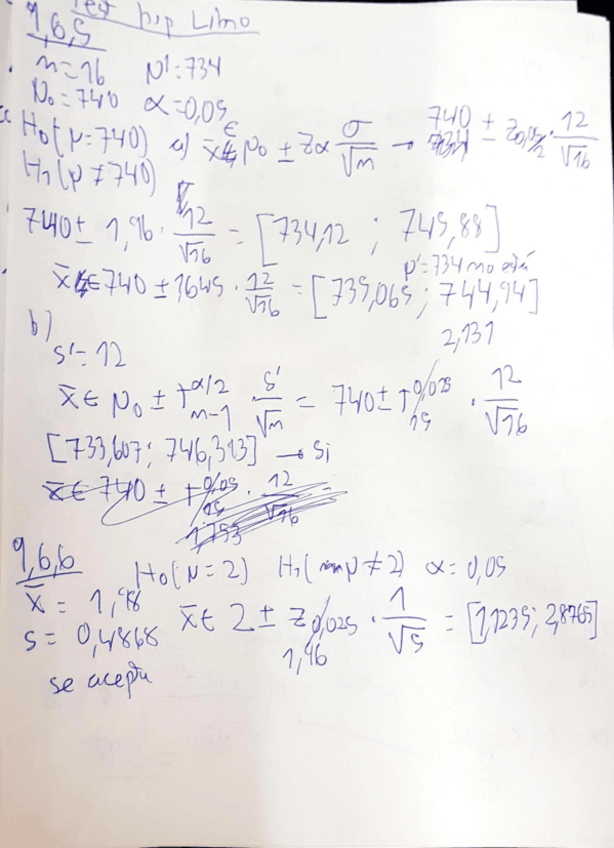 Test hip Limo
9,6,5
n=16 μ'=734
μ₀=740 α=0,05
H₀(μ=740) a) x̄ ∈ μ₀ ± zα σ/√n → 740 ± z0,05/2 · 12/√16
H₁(μ≠740)
740 ± 1,96 · 12/√16 = [734,12 ; 745,88]
μ'=734 no está
x̄ ∈ 740 ± 1645 · 12/√16 = [735,065 ; 744,94]
b)
s'=12
2,131
x̄ ∈ μ₀ ± t α/2 n-1 · s'/√n = 740 ± t 0,025 15 · 12/√16
[733,607 ; 746,393] → Si
x̄ ∈ 740 ± t 0,05 15 · 12/√16 =
1,753
9,6,6
H₀(μ=2) H₁(μ≠2) α=0,05
x̄ = 1,98
s = 0,4868
x̄ ∈ 2 ± z0,025 · 1/√5 = [1,1235; 2,8765]
1,96
se acepta